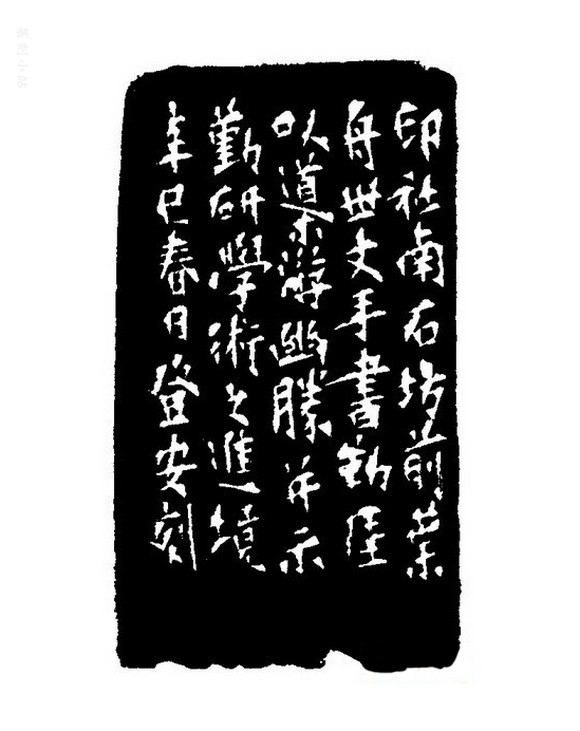 印社南石坊前葉
舟世丈手書勒厓
以導游幽勝并示
勤研學術之進境
辛巳春日登安刻